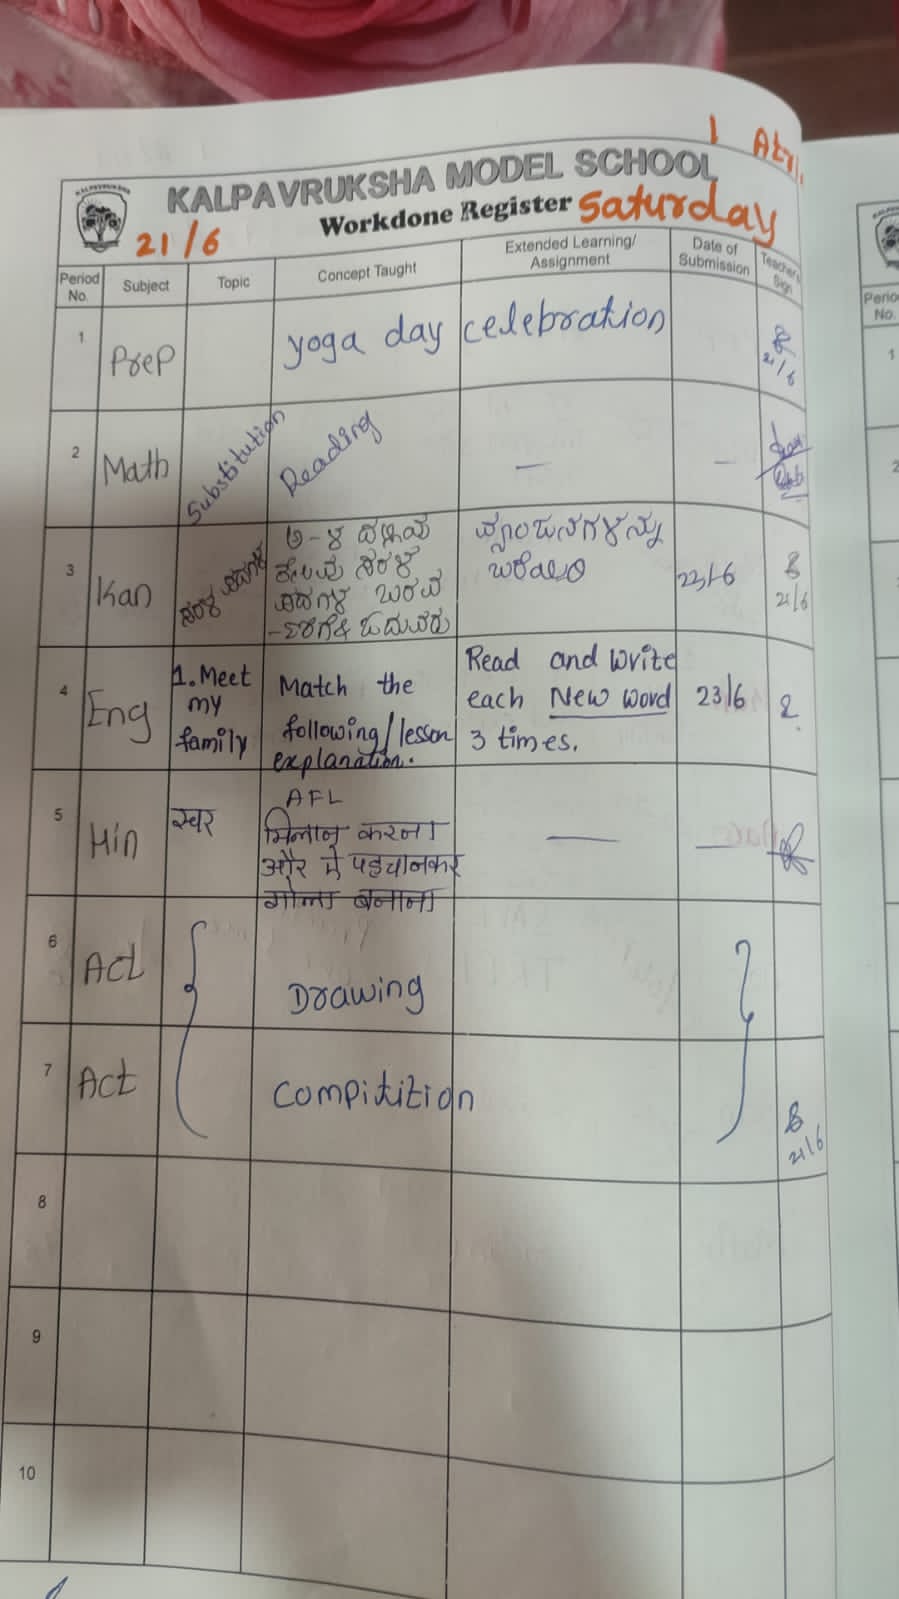 KALPAVRUKSHA
KALPAVRUKSHA MODEL SCHOOL
Workdone Register Saturday
21/6
Period No. Subject Topic Concept Taught Extended Learning/ Assignment Date of Submission Teacher's Sign
1 PreP yoga day celebration 21/6
2 Math Substitution Reading — —
3 Kan ಸರಳ ಪದಗಳು ಅ-ಳ ವ್ಯಂಜನಗಳನ್ನು 23/6 21/6
ಸರಳ ಬರೆಯಿರಿ
ಪದಗಳ
ಓದುವರು
4 Eng 1. Meet my family Match the following/lesson explanation. Read and write each New word 3 times. 23/6
5 Hin स्वर AFL — —
मिलान करना
और में पहचानकर
गोला बनाना
6 Act Drawing
7 Act Compitition 21/6
8
9
10
Period No.
1
2